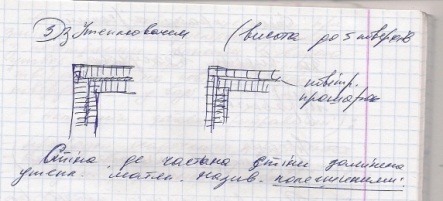 3) З Утеплювачем (висота до 5 поверхів
повітр.
прошарок
Стіна, де частина стіни замінена
утепл. мател. назив. полегшеними.